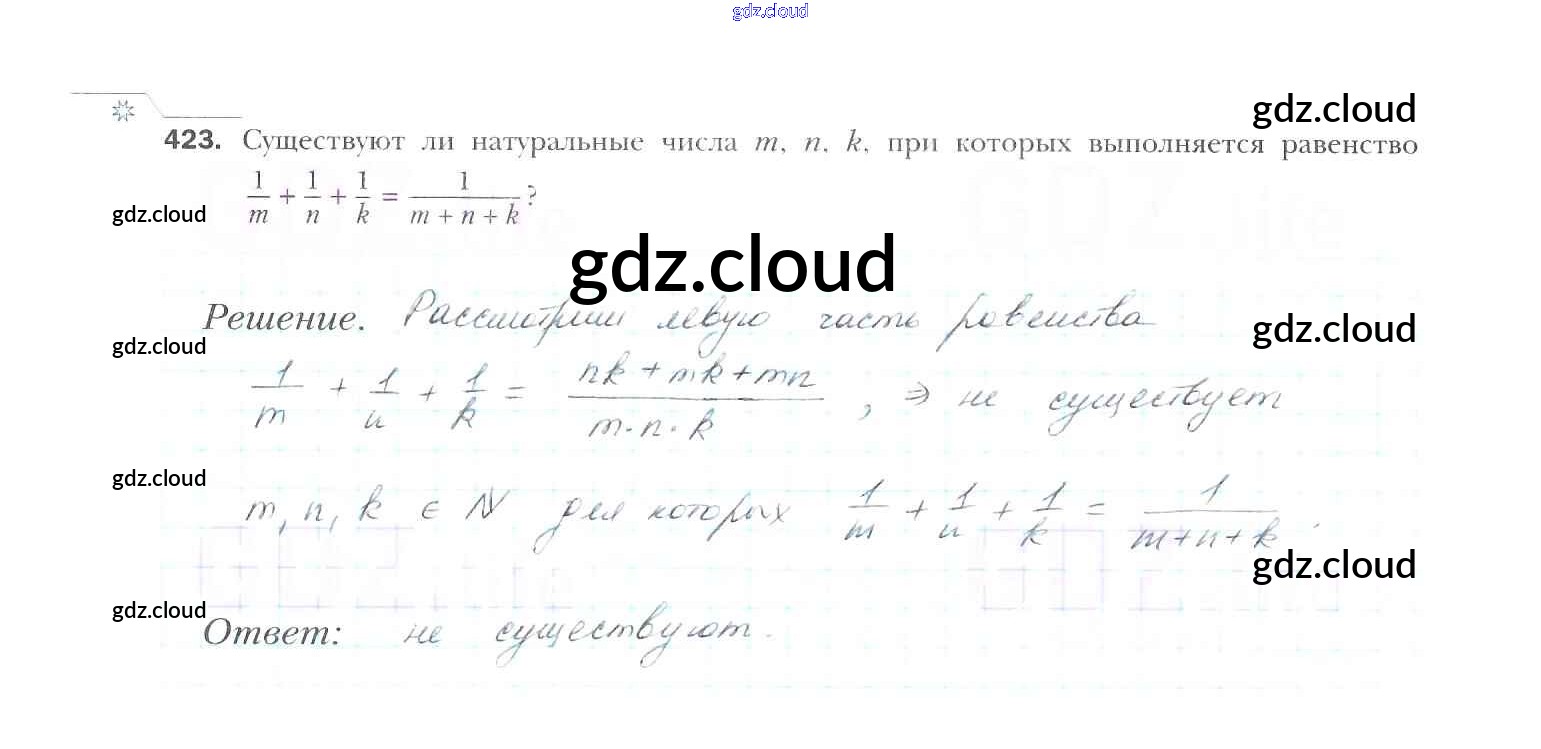 gdz.cloud
gdz.cloud
423. Существуют ли натуральные числа m, n, k, при которых выполняется равенство
1/m + 1/n + 1/k = 1/(m + n + k)?
gdz.cloud
gdz.cloud
Решение. Рассмотрим левую часть равенства
gdz.cloud
gdz.cloud
1/m + 1/n + 1/k = (nk + mk + mn)/(m·n·k), ⇒ не существует
gdz.cloud
m, n, k ∈ N для которых 1/m + 1/n + 1/k = 1/(m+n+k).
gdz.cloud
gdz.cloud
Ответ: не существуют.